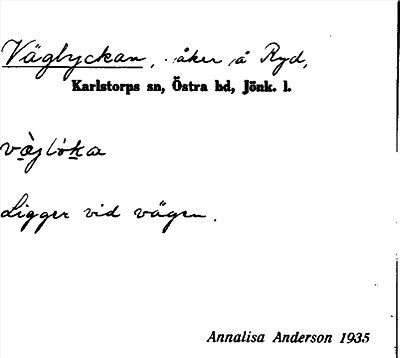 Väglyckan, åker å Ryd,
Karlstorps sn, Östra hd, Jönk. l.
Ligger vid vägen.
Annalisa Anderson 1935